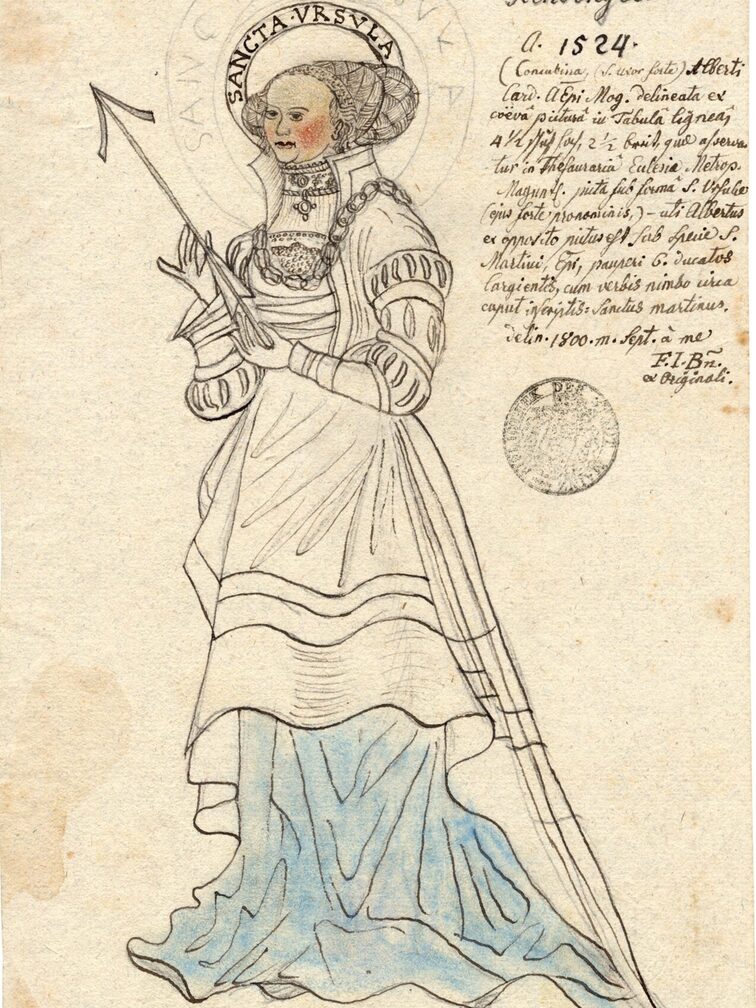 SANCTA·VRSVLA
A. 1524.
(Concubina, (s. uxor forte) Alberti
Card. AEpi Mog. delineata ex
coëva pictura in Tabula lignea,
4 1/2 2 1/2 breit, que asserva
tur in Thesauraria Eclesiæ Metrop.
picta sub forma S. Vrsulæ
(ejus forte pronominis,) – uti Albertus
ex opposito pictus est sub specie S.
Martini, Epi, pauperi 6. ducatos
largientis, cum verbis nimbo circa
caput inscriptis: Sanctus martinus.
delin. 1800. m. Sept. à me
F. I. Bn̄.
ex Originali.